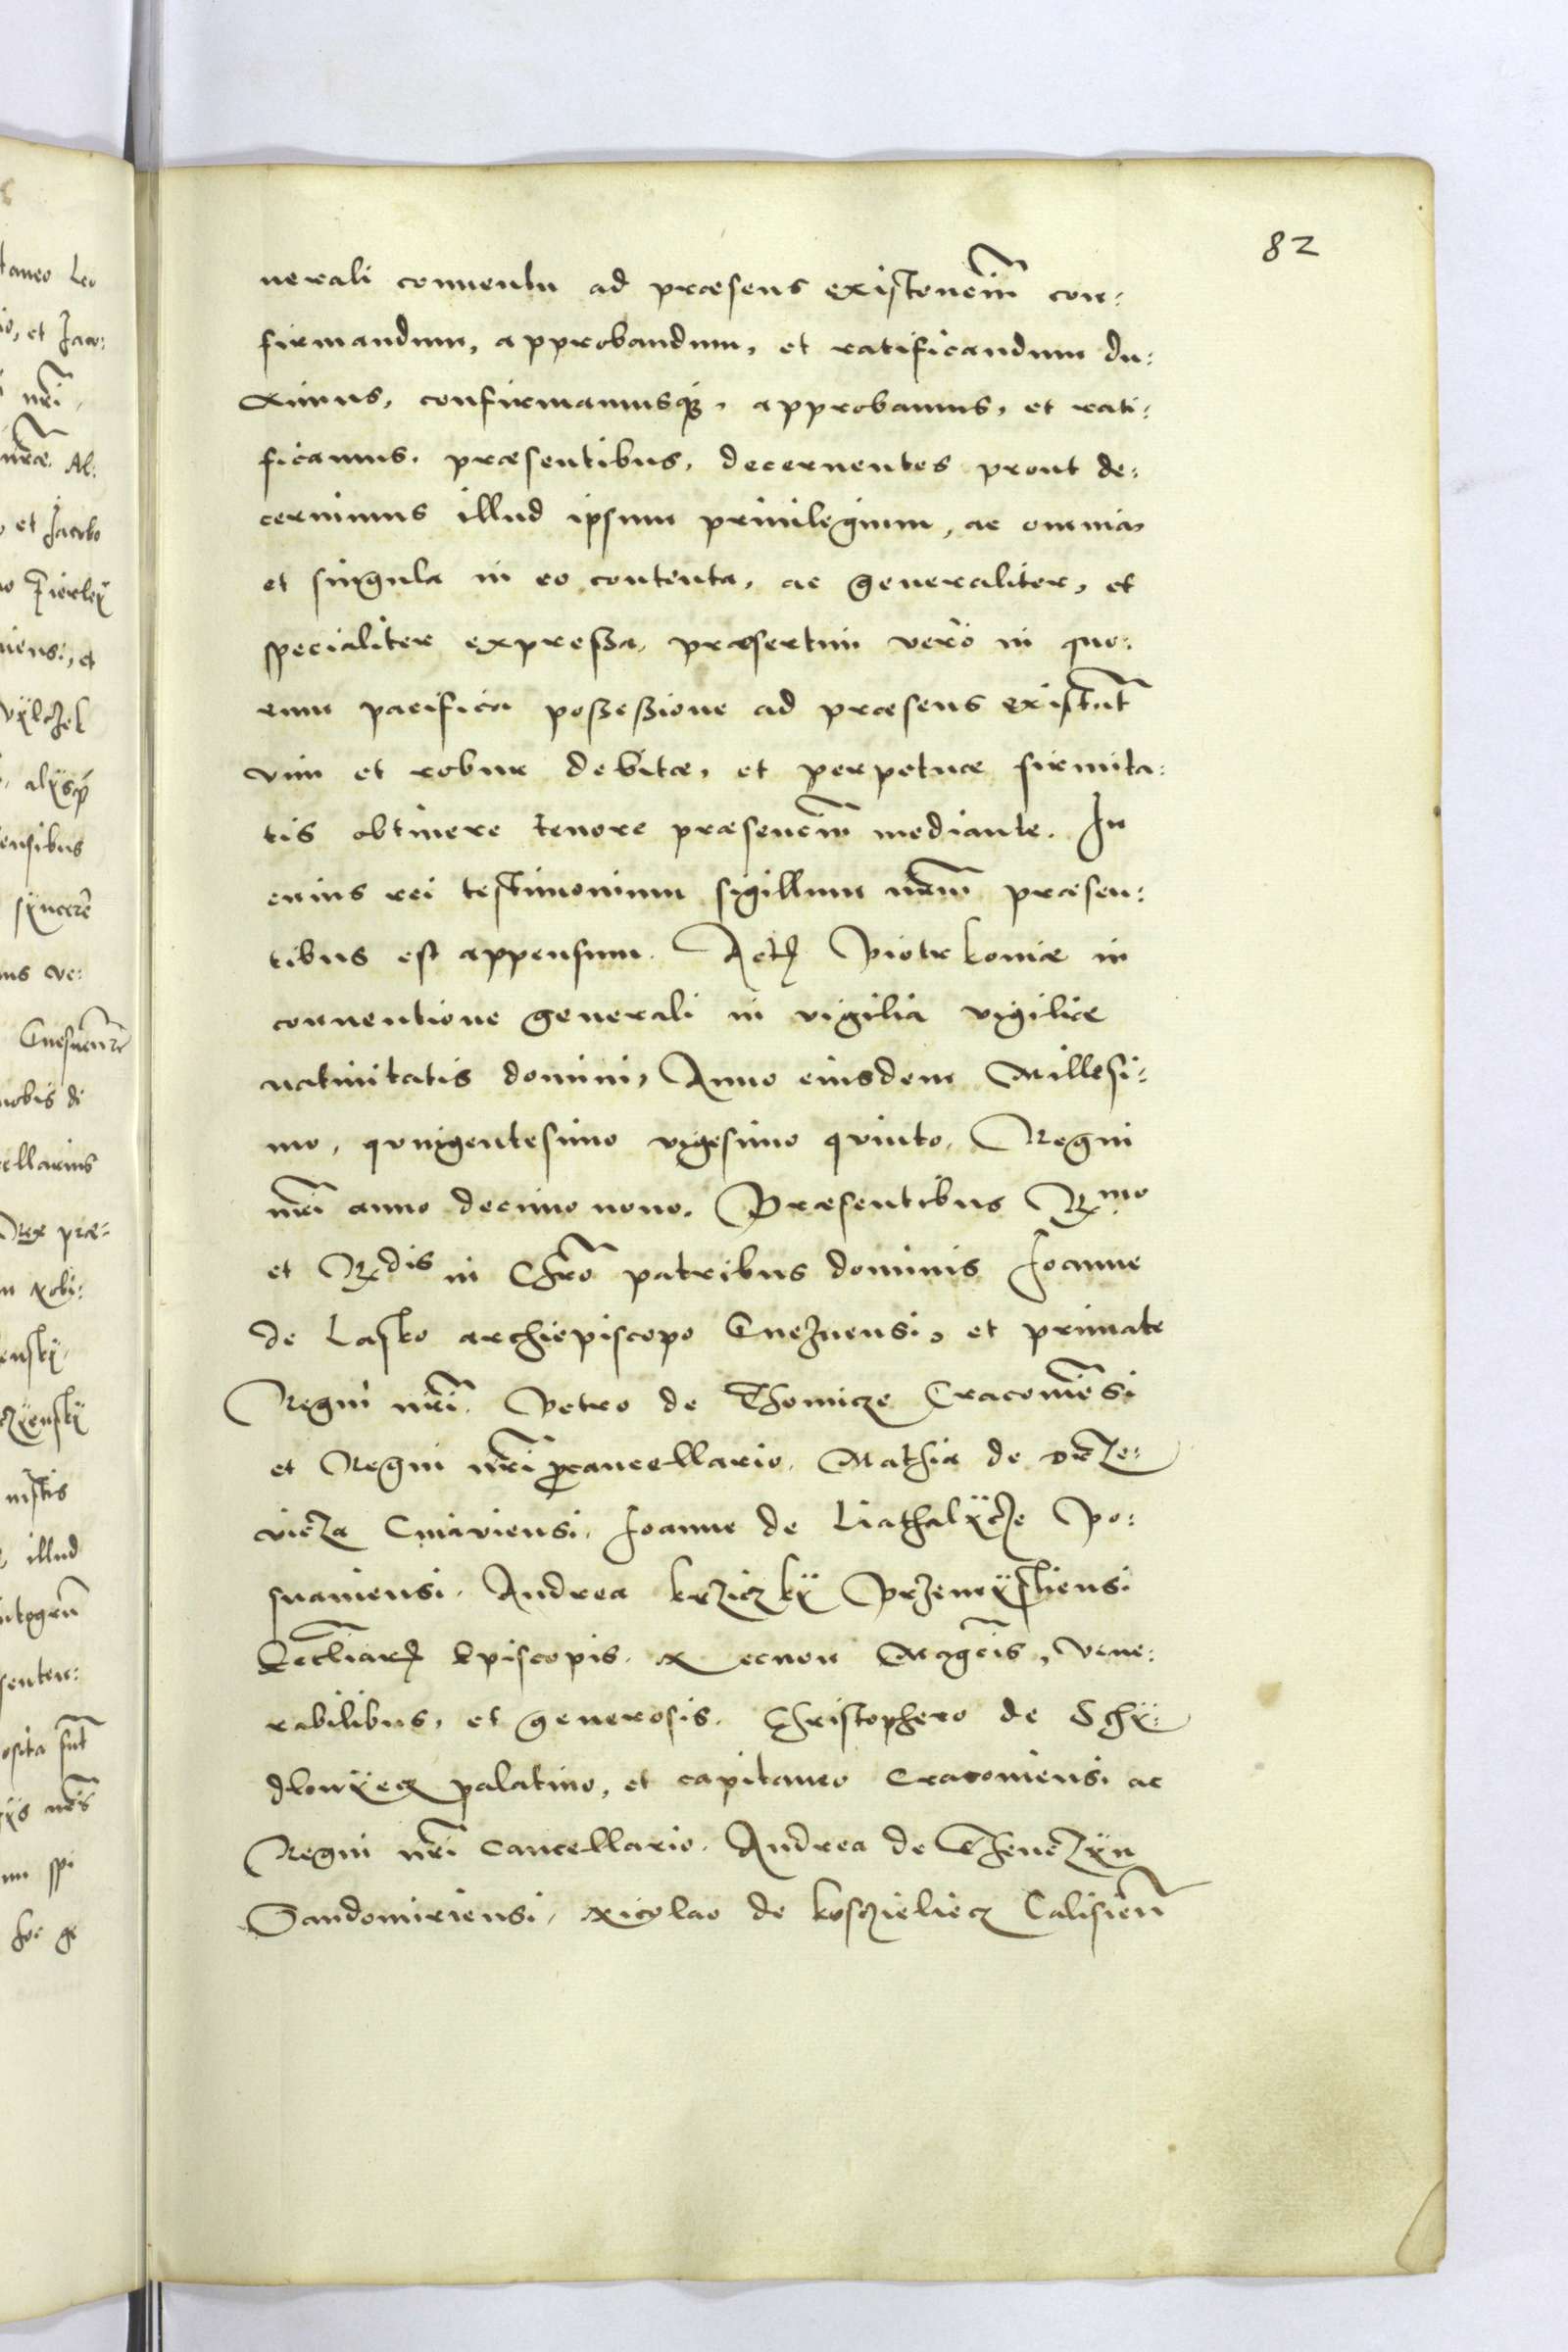 82
nerali conuentu ad præsens existenciũ con:
firmandum, approbandum, et ratificandum du:
ximus, confirmamusq;, approbamus, et rati:
ficamus. præsentibus, decernentes prout de:
cernimus illud ipsum priuilegium, ac omnia
et singula in eo contenta, ac generaliter, et
specialiter expressa, præsertim verò in quo:
rum pacifica possessione ad præsens existũt
vim et robur debitæ, et perpetuæ firmita:
tis obtinere tenore præsenciũ mediante. In
cuius rei testimonium sigillum nr̃m præsen:
tibus est appensum. Actũ Piotrkouiæ in
conuentione generali in vigilia vigiliæ
natiuitatis domini, Anno eiusdem Millesi:
mo, quingentesimo vigesimo quinto, Regni
nr̃i anno decimo nono. Præsentibus R.mo
et R.dis in Chr̃o patribus dominis Joanne
de Lasko archiepiscopo Gneznensi, et primate
Regni nr̃i. Petro de Thomicze Cracouiẽsi
et Regni nr̃i ꝓcancellario. Mathia de Drze:
vicza Cuiaviensi. Joanne de Liathalÿcze Po:
snaniensi. Andrea krziczkÿ Przemÿsliensi
Eccl̃iarũ Episcopis. Necnon Magc̃is, Vene:
rabilibus, et generosis. Christophero de Schÿ:
dlowÿecz palatino, et capitaneo Cracouiensi ac
Regni nr̃i Cancellario. Andrea de Thenczÿn
Sandomiriensi, Nicolao de kosczieliecz Calisieñ
taneo Leo
io, et Jaco:
nr̃i.
nr̃æ. Al:
et Jacobo
o Fierleÿ
niens:, et
alÿsq;
ensibus
sÿncerè
ns ve:
nobis di
cellarius
Rex præ:
n nobi:
illud
senten:
osita sũt
ÿs nr̃is
m spi
hoc ge